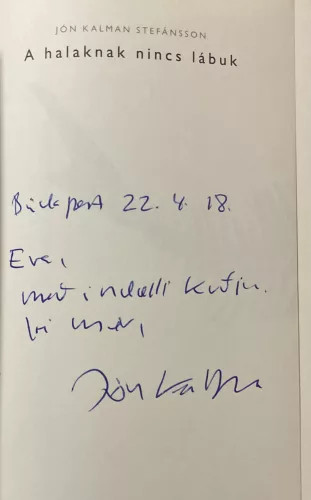 JÓN KALMAN STEFÁNSSON
A halaknak nincs lábuk
Búdapest 22. 4. 18.
Eva,
með indælli kveðju.
frá mér,
Jón Kalman